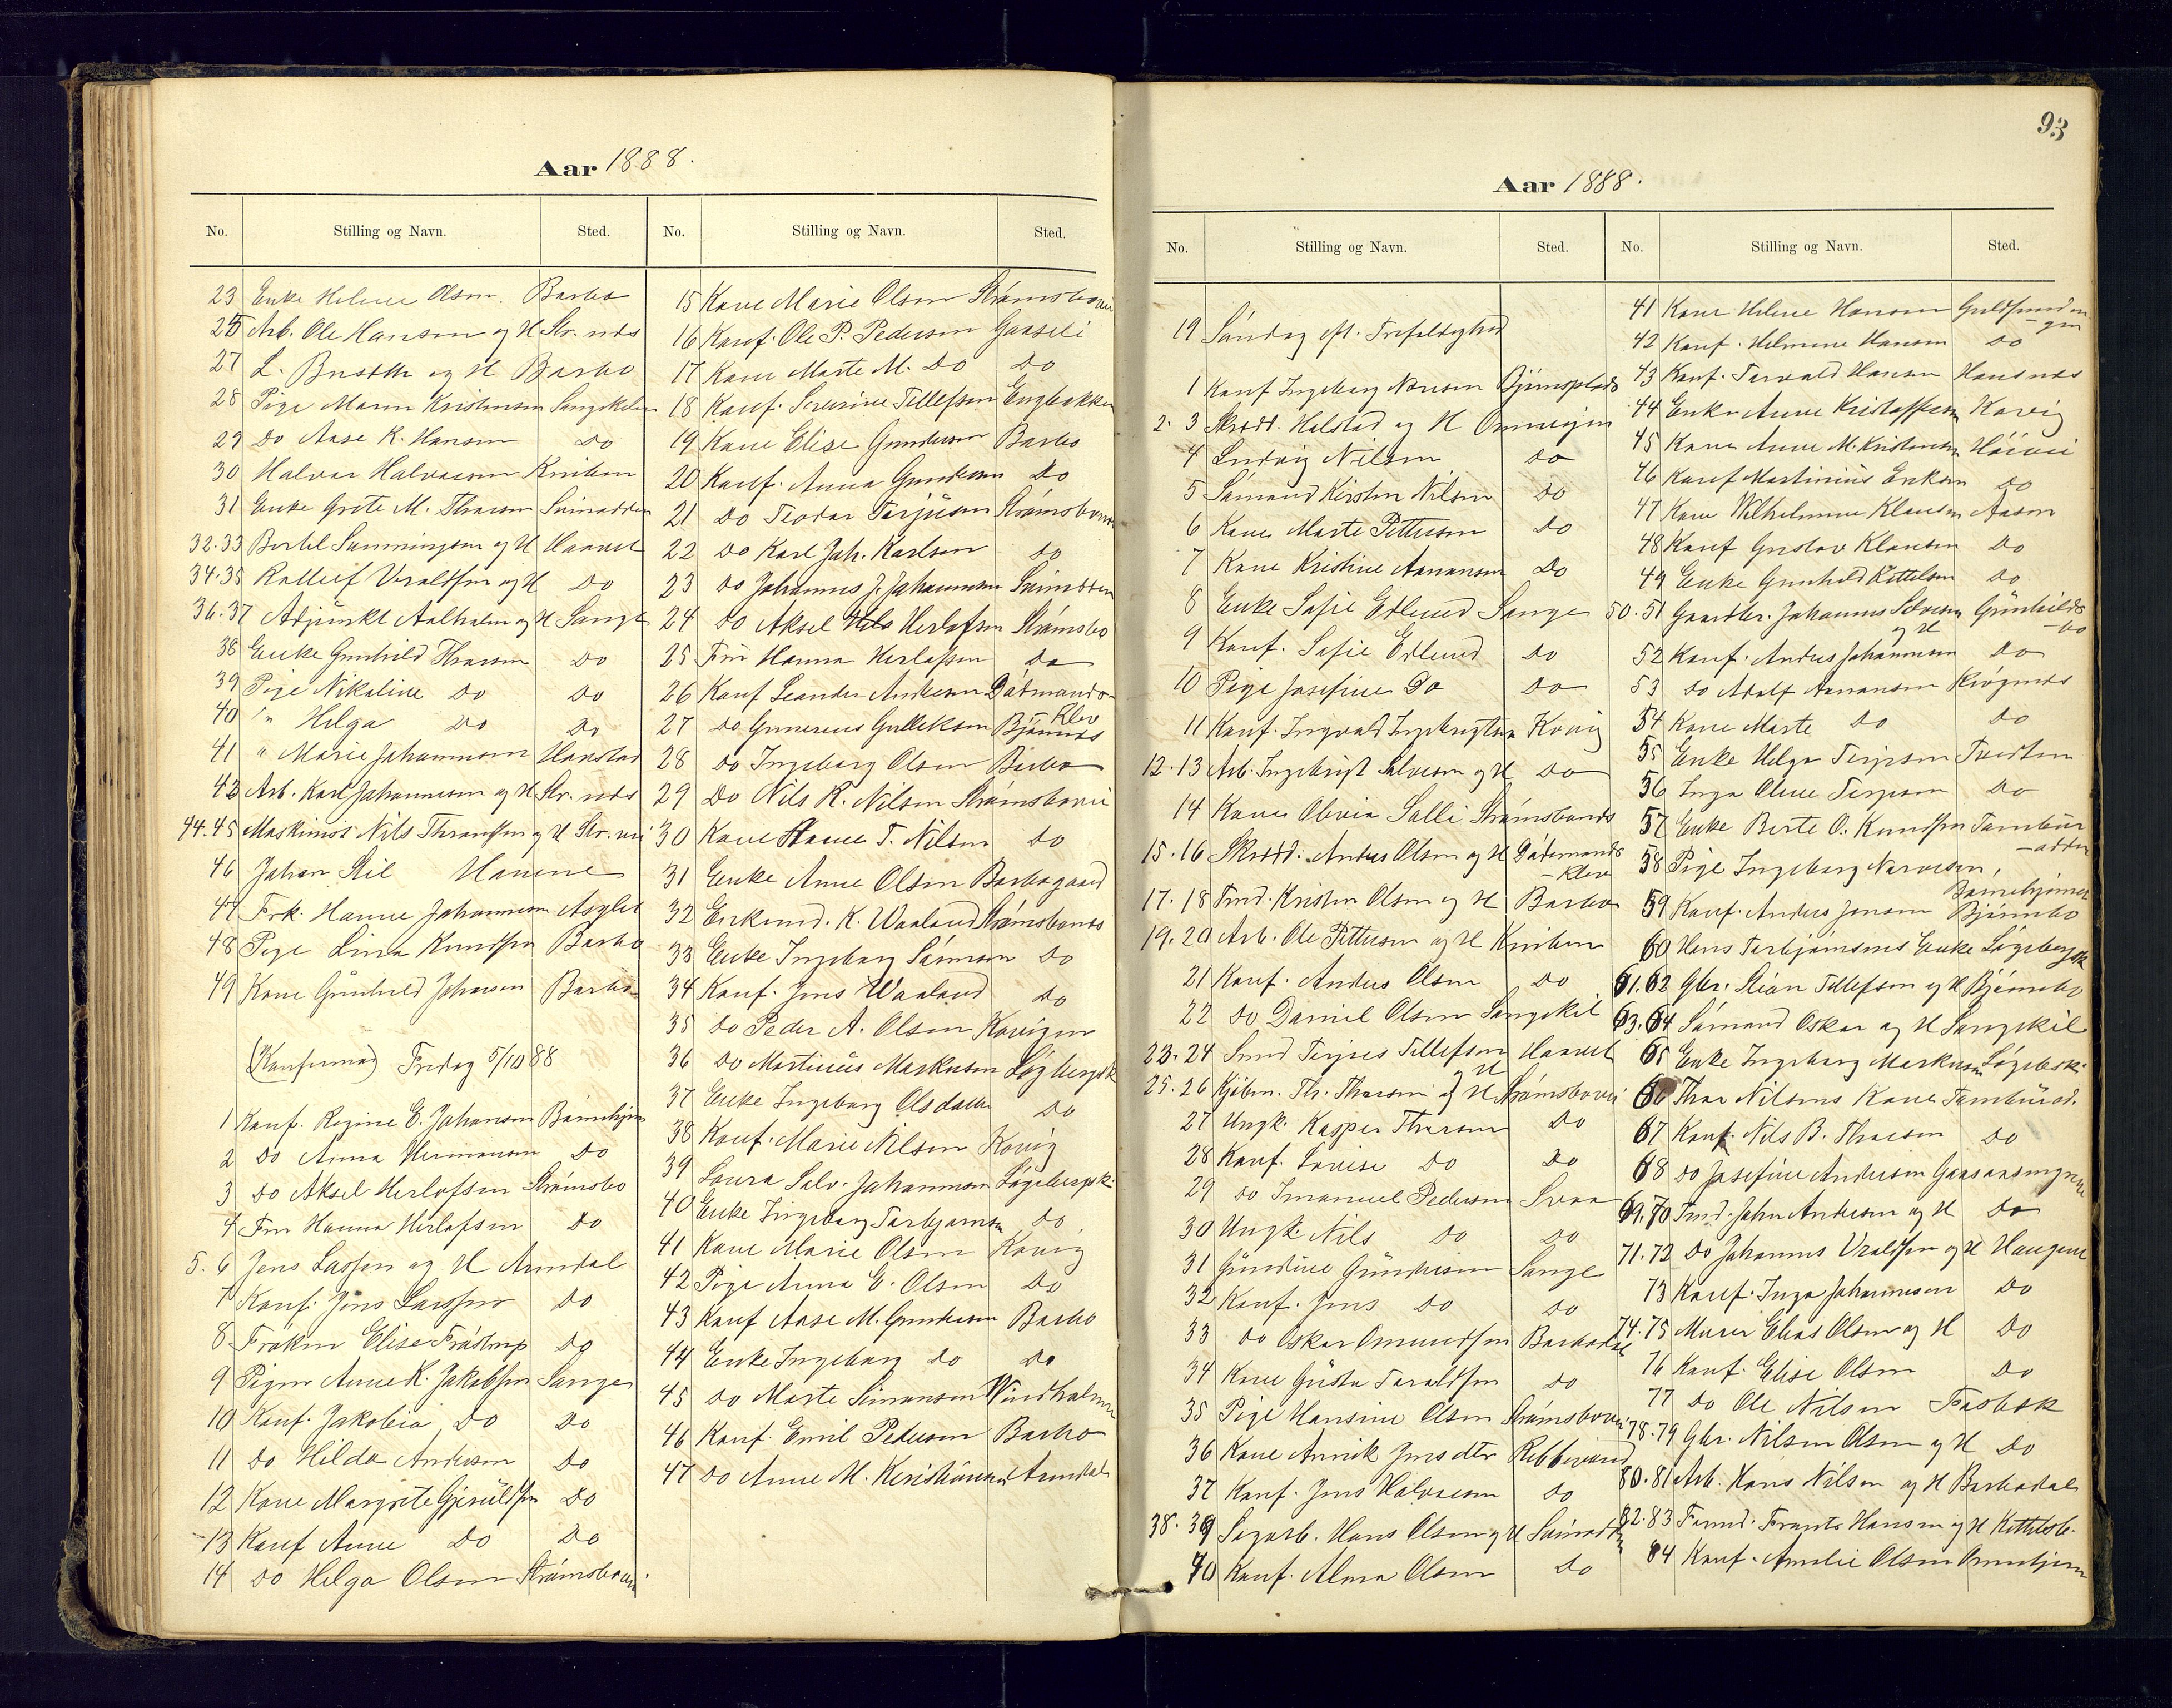 Aar 1888.
No. Stilling og Navn. Sted. No. Stilling og Navn. Sted.
23 Enke Helene Olsen. Barbo
25 Arb. Ole Hansen og H Str. nes
27 L. og H Barbo
28 Pige Maren Kristensen Langekilen
29 Do Aase K. Hansen Do
30 Halvor Halvorsen Kniben
31 Enke Grete M. Thorsen Suinodden
32.33 Bertel og H Haavet
34.35 Rolleif Vraldsen og H Do
36.37 Adjunkt Aalholm og H Lange
38 Enke Gunhild Thorsen Do
39 Pige Nikoline Do Do
40 " Helga Do Do
41 " Marie Johannesen Hanstad
43 Arb. Karl Johannesen og H Str. nes
44.45 Maskinist Nils Thronsen og H Str. vei
46 Johan Stil Havene
47 Frk. Hanne Johannesen Asylet
48 Pige Lina Knudsen Barbo
49 Kone Gunhild Johnsen Barbo
(Konfirmad) Fredag 5/10 88
1 Konf. Regine E. Johansen
2 Do Anna Hermansen Do
3 Do Aksel Herlofsen Strømsbo
4 Fru Hanna Herlofsen Do
5.6 Jens Lassen og H Arendal
7 Konf. Jens Larssen Do
8 Frøken Elise Frøstrup Do
9 Pigen Anne K. Jakobsen Lange
10 Konf. Jakobia Do Do
11 Do Hilda Andersen Do
12 Kone Margrete Gjeruldsen Do
13 Konf Anne Do Do
14 Do Helga Olsen Strømsbovei.
15 Kone Marie Olsen Strømsbovei
16 Konf. Ole P. Pedersen Gaaseli
17 Kone Marte M. Do Do
18 Konf. Severine Tellefsen Engbakken
19 Kone Elise Gundersen Barbo
20 Konf. Anna Gundersen Do
21 Do Teodor Terjusen Strømsbones
22 Do Karl Joh. Karlsen Do
23 Do Johannes J. Johannesen Suinodden
24 Do Aksel Herlofsen Strømsbo
25 Fru Hanna Herlofsen Do
26 Konf Leander Andersen Dødmands-
-Klev
27 Do Gunerius Gulleksen Bjønnes
28 Do Ingeborg Olsen Barbo
29 Do Nils R. Nilsen Strømsbovei
30 Kone T. Nilsen Do
31 Enke Anne Olsen Barbogaard
32 K. Waaland Strømsbones
33 Enke Ingeborg Do
34 Konf. Jens Waaland Do
35 Do Peder A. Olsen Kovigen
36 Do Martinius Markusen Løgbergsk
37 Enke Ingeborg Olsdatter Do
38 Konf. Marie Nilsen Kovig
39 Laura Salv. Johannesen Løgebergsk.
40 Enke Ingeborg Torbjørnsen Do
41 Kone Marie Olsen Kovig
42 Pige Anna E. Olsen Do
43 Konf Aase M. Gundersen Barbo
44 Enke Ingeborg Do Do
45 Do Marte Simonsen Windholmen
46 Konf. Emil Pedersen Barbo
47 Do Anne M. Kristiansen Arendal
93
Aar 1888.
No. Stilling og Navn. Sted. No. Stilling og Navn. Sted.
19 Søndag eft. Trefoldighed
1 Konf Ingeborg Bjørnsplads
2.3 Skrædd. Halstad og H
4 Ludvig Nilsen Do
5 Sømand Kirsten Nilsen Do
6 Kone Marte Pettersen Do
7 Kone Kristine Aanonsen Do
8 Enke Sofie Edlund Lange
9 Konf. Sofie Edlund Do
10 Pige Josefine Do Do
11 Konf. Ingvald Ingebrigtsen Kovig
12.13 Arb. Ingebrigt Salvesen og H Do
14 Kone Olivia Salli Strømsbones
15.16 Skrædd. Anders Olsen og H Dødmands
-Klev
17.18 Tmd. Kristen Olsen og H Barbo
19.20 Arb. Ole Pettersen og H Kniben
21 Konf. Anders Olsen Do
22 Do Daniel Olsen Langekil
23.24 Smed Terjes Tellefsen Haavet
og H
25.26 Kjøbm. Th. Thorsen og H Strømsbovei
27 Ungk. Kasper Thorsen Do
28 Konf. Lovise Do Do
29 Do Imanuel Pedersen Svaa
30 Ungk. Nils Do Do
31 Gundine Gundersen Lange
32 Konf. Jens Do Do
33 Do Oskar Omundsen Barbodal
34 Kone Gusta Taraldsen Do
35 Pige Hansine Olsen Strømsbovei
36 Kone Annik Jensdtr
37 Konf. Jens Halvorsen Do
38.39 Sagarb. Hans Olsen og H Suinodden
40 Konf. Alma Olsen Do
41 Kone Helene Hansen Guldsmedeng-
-en
42 Konf. Helmine Hansen Do
43 Konf. Torvald Hansen Hansnes
44 Enke Anne Kristoffersen Kovig
45 Kone Anne M. Kristensen
46 Konf Martinius Eriksen Do
47 Kone Vilhelmine Klausen Aasen
48 Konf Gustav Klausen Do
49 Enke Gunhild Kettelsen Do
50.51 Gaardbr. Johannes Salvesen Gunhilds
og H -bo
52 Konf. Anders Johannesen Do
53 Do Adolf Aanonsen Krøgenes
54 Kone Marte Do Do
55 Enke Helga Terjesen Tveden
56 Inga Oline Terjesen Do
57 Enke Berte O. Knudsen Tambur
-odden
58 Pige Ingeborg
59 Konf. Anders Jensen Bjørnebo
60 Torbjørnsens Enke Løgebergsk
61.62 Gbr. Stian Tellefsen og H Bjørnebo
63.64 Sømand Oskar og H Langekil
65 Enke Ingeborg Markusen Løgebsk.
66 Thor Nilsens Kone Tamburod.
67 Konf. Nils B. Thorsen Do
68 Do Josefine Andersen
69.70 Tmd. John Andersen og H Do
71.72 Do Johannes Vraldsen og H Haugene
73 Konf. Inga Johannesen Do
74.75 Murer Elias Olsen og H Do
76 Konf. Elise Olsen Do
77 Do Ole Nilsen Fosbæk
78.79 Gbr. Nilsen Olsen og H Do
80.81 Arb. Hans Nilsen og H Barbodal
82.83 Frants Hansen og H Kittelsb.
84 Konf. Amalie Olsen